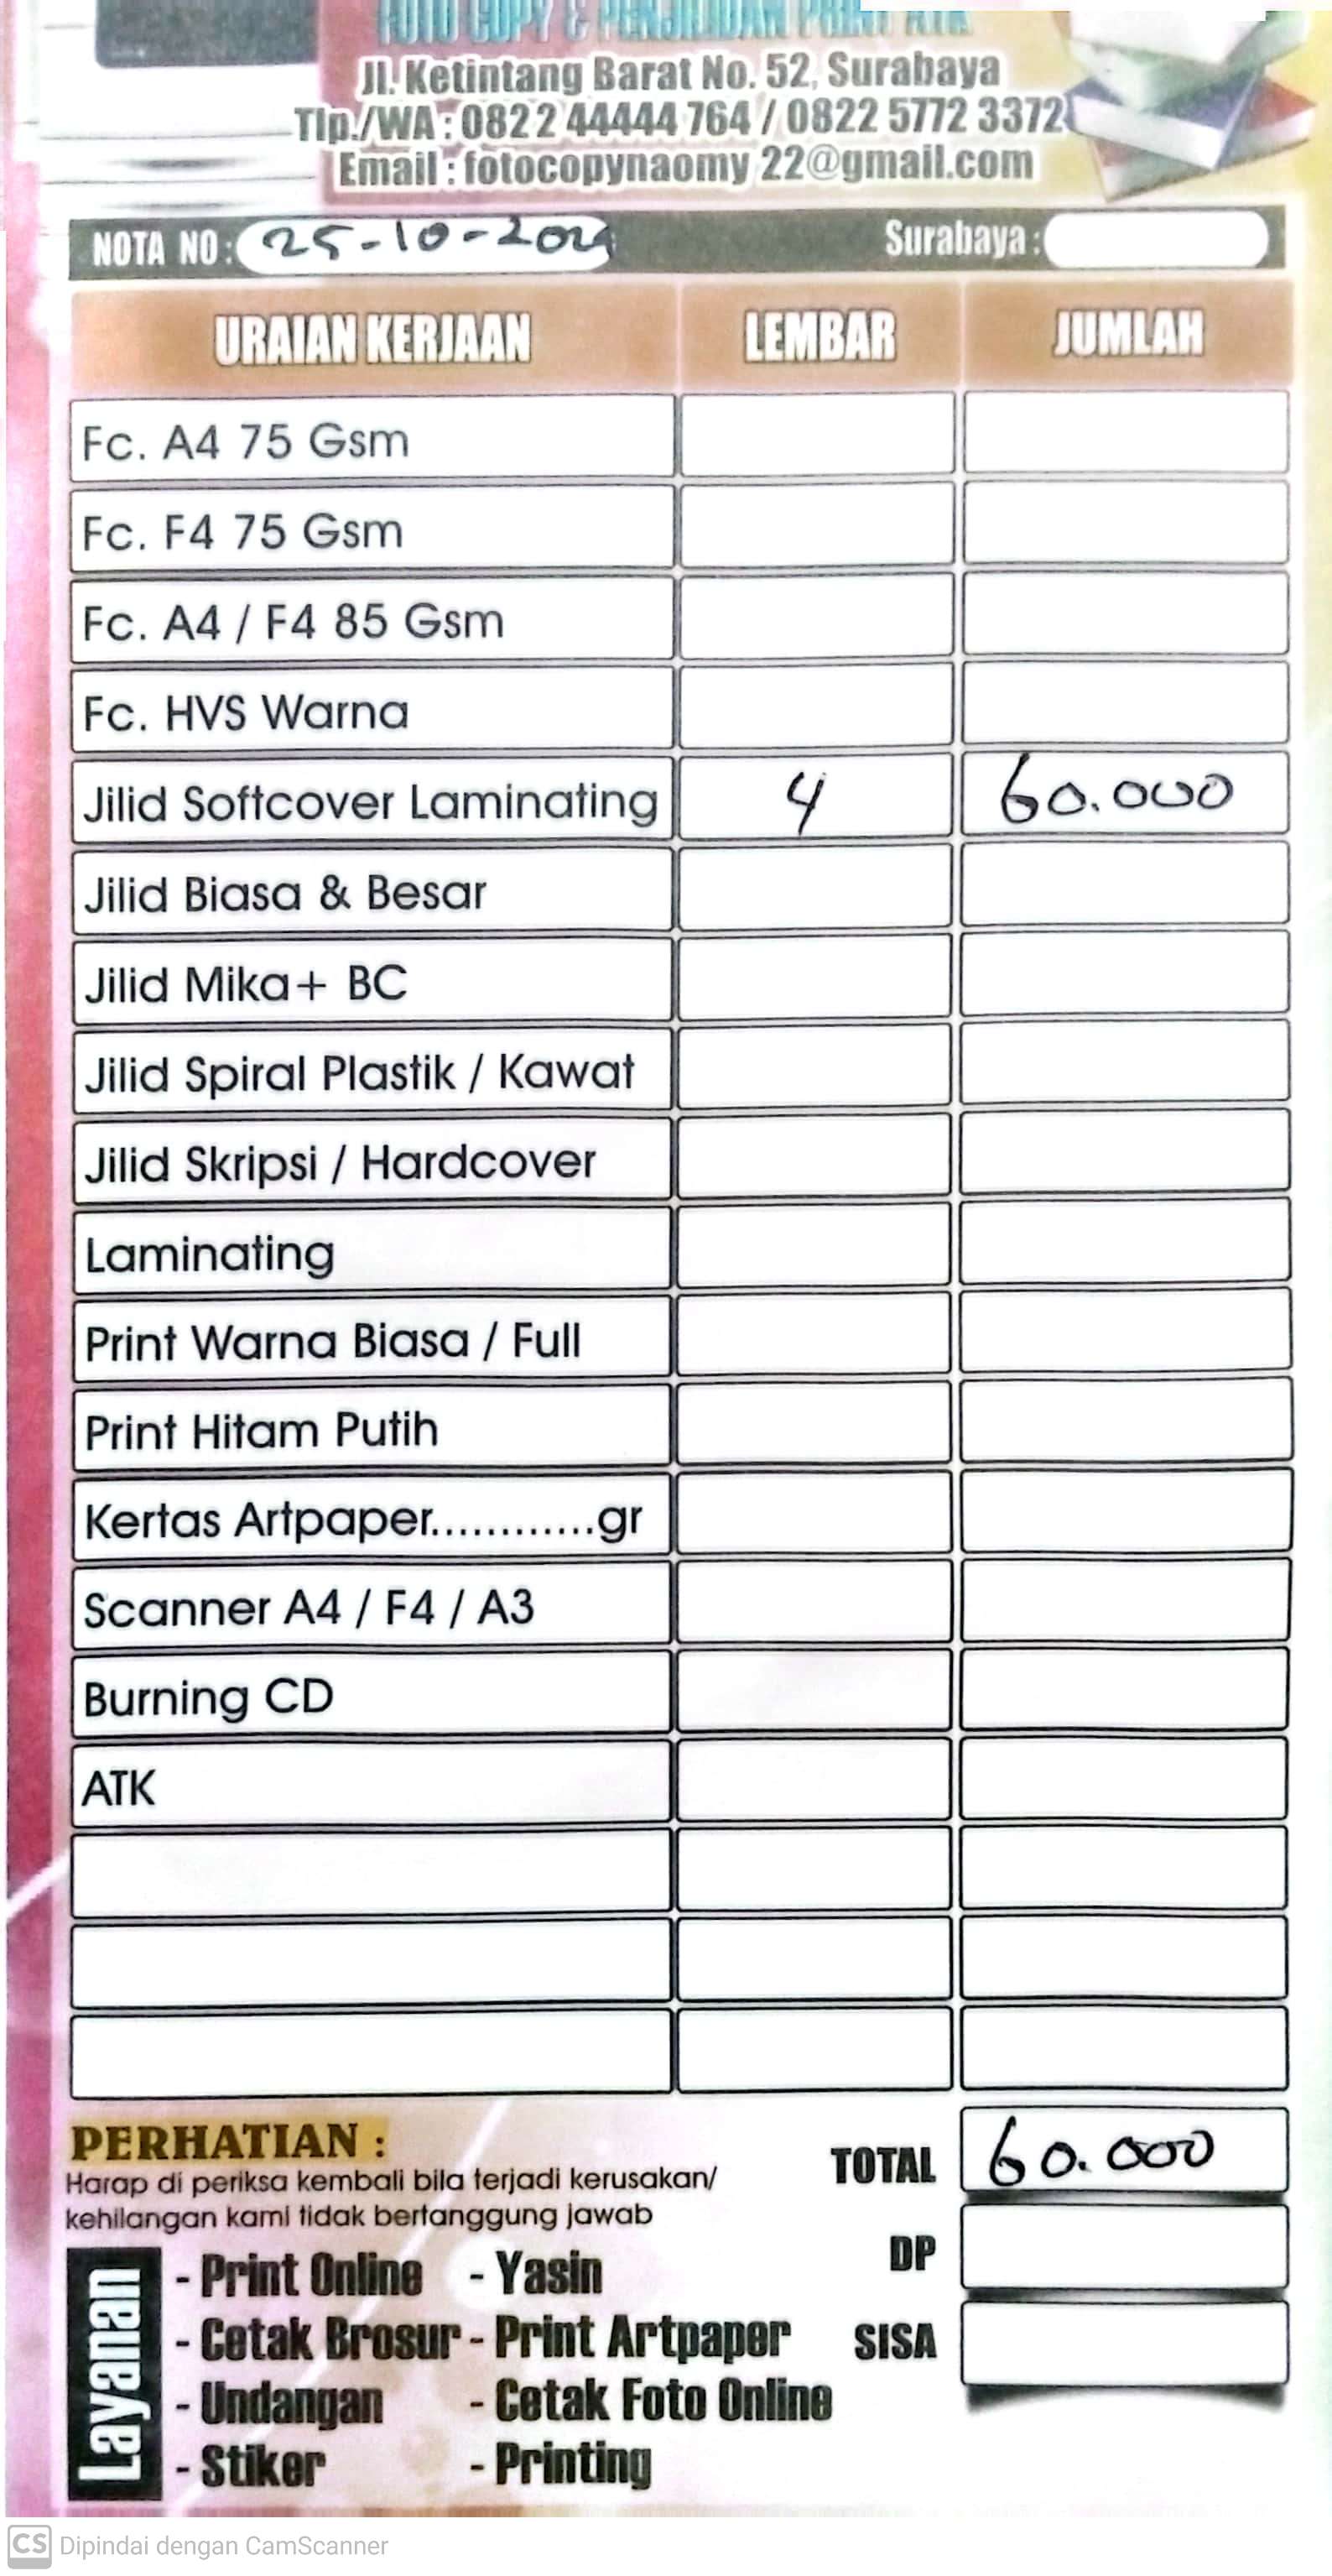 FOTO COPY & PENJILIDAN PRINT ATK
Jl. Ketintang Barat No. 52, Surabaya
Tlp./WA : 0822 44444 764 / 0822 5772 3372
Email : fotocopynaomy 22@gmail.com
NOTA NO : 25-10-2024 Surabaya :
URAIAN KERJAAN LEMBAR JUMLAH
Fc. A4 75 Gsm
Fc. F4 75 Gsm
Fc. A4 / F4 85 Gsm
Fc. HVS Warna
Jilid Softcover Laminating 4 60.000
Jilid Biasa & Besar
Jilid Mika+ BC
Jilid Spiral Plastik / Kawat
Jilid Skripsi / Hardcover
Laminating
Print Warna Biasa / Full
Print Hitam Putih
Kertas Artpaper............gr
Scanner A4 / F4 / A3
Burning CD
ATK
PERHATIAN :
Harap di periksa kembali bila terjadi kerusakan/
kehilangan kami tidak bertanggung jawab
TOTAL 60.000
DP
SISA
Layanan
- Print Online - Yasin
- Cetak Brosur - Print Artpaper
- Undangan - Cetak Foto Online
- Stiker - Printing
CS Dipindai dengan CamScanner